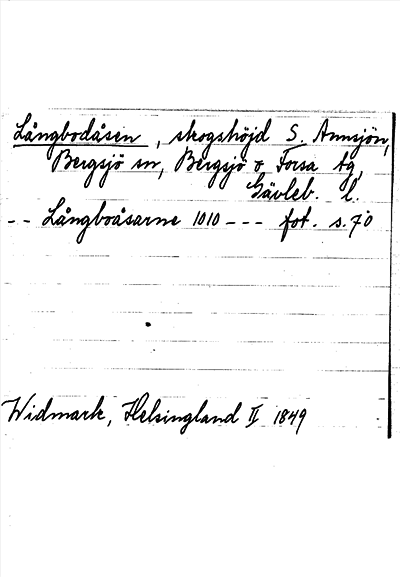 Långbodåsen, skogshöjd S. Annsjön,
Bergsjö sn, Bergsjö o Forsa tg,
Gävleb. l.
-- Långboåsarne 1010 --- fot. s. 70
Widmark, Helsingland II 1849